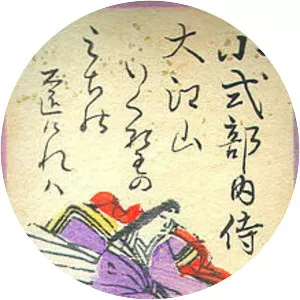 小式部内侍
大江山
いくのの
みちの
遠けれハ